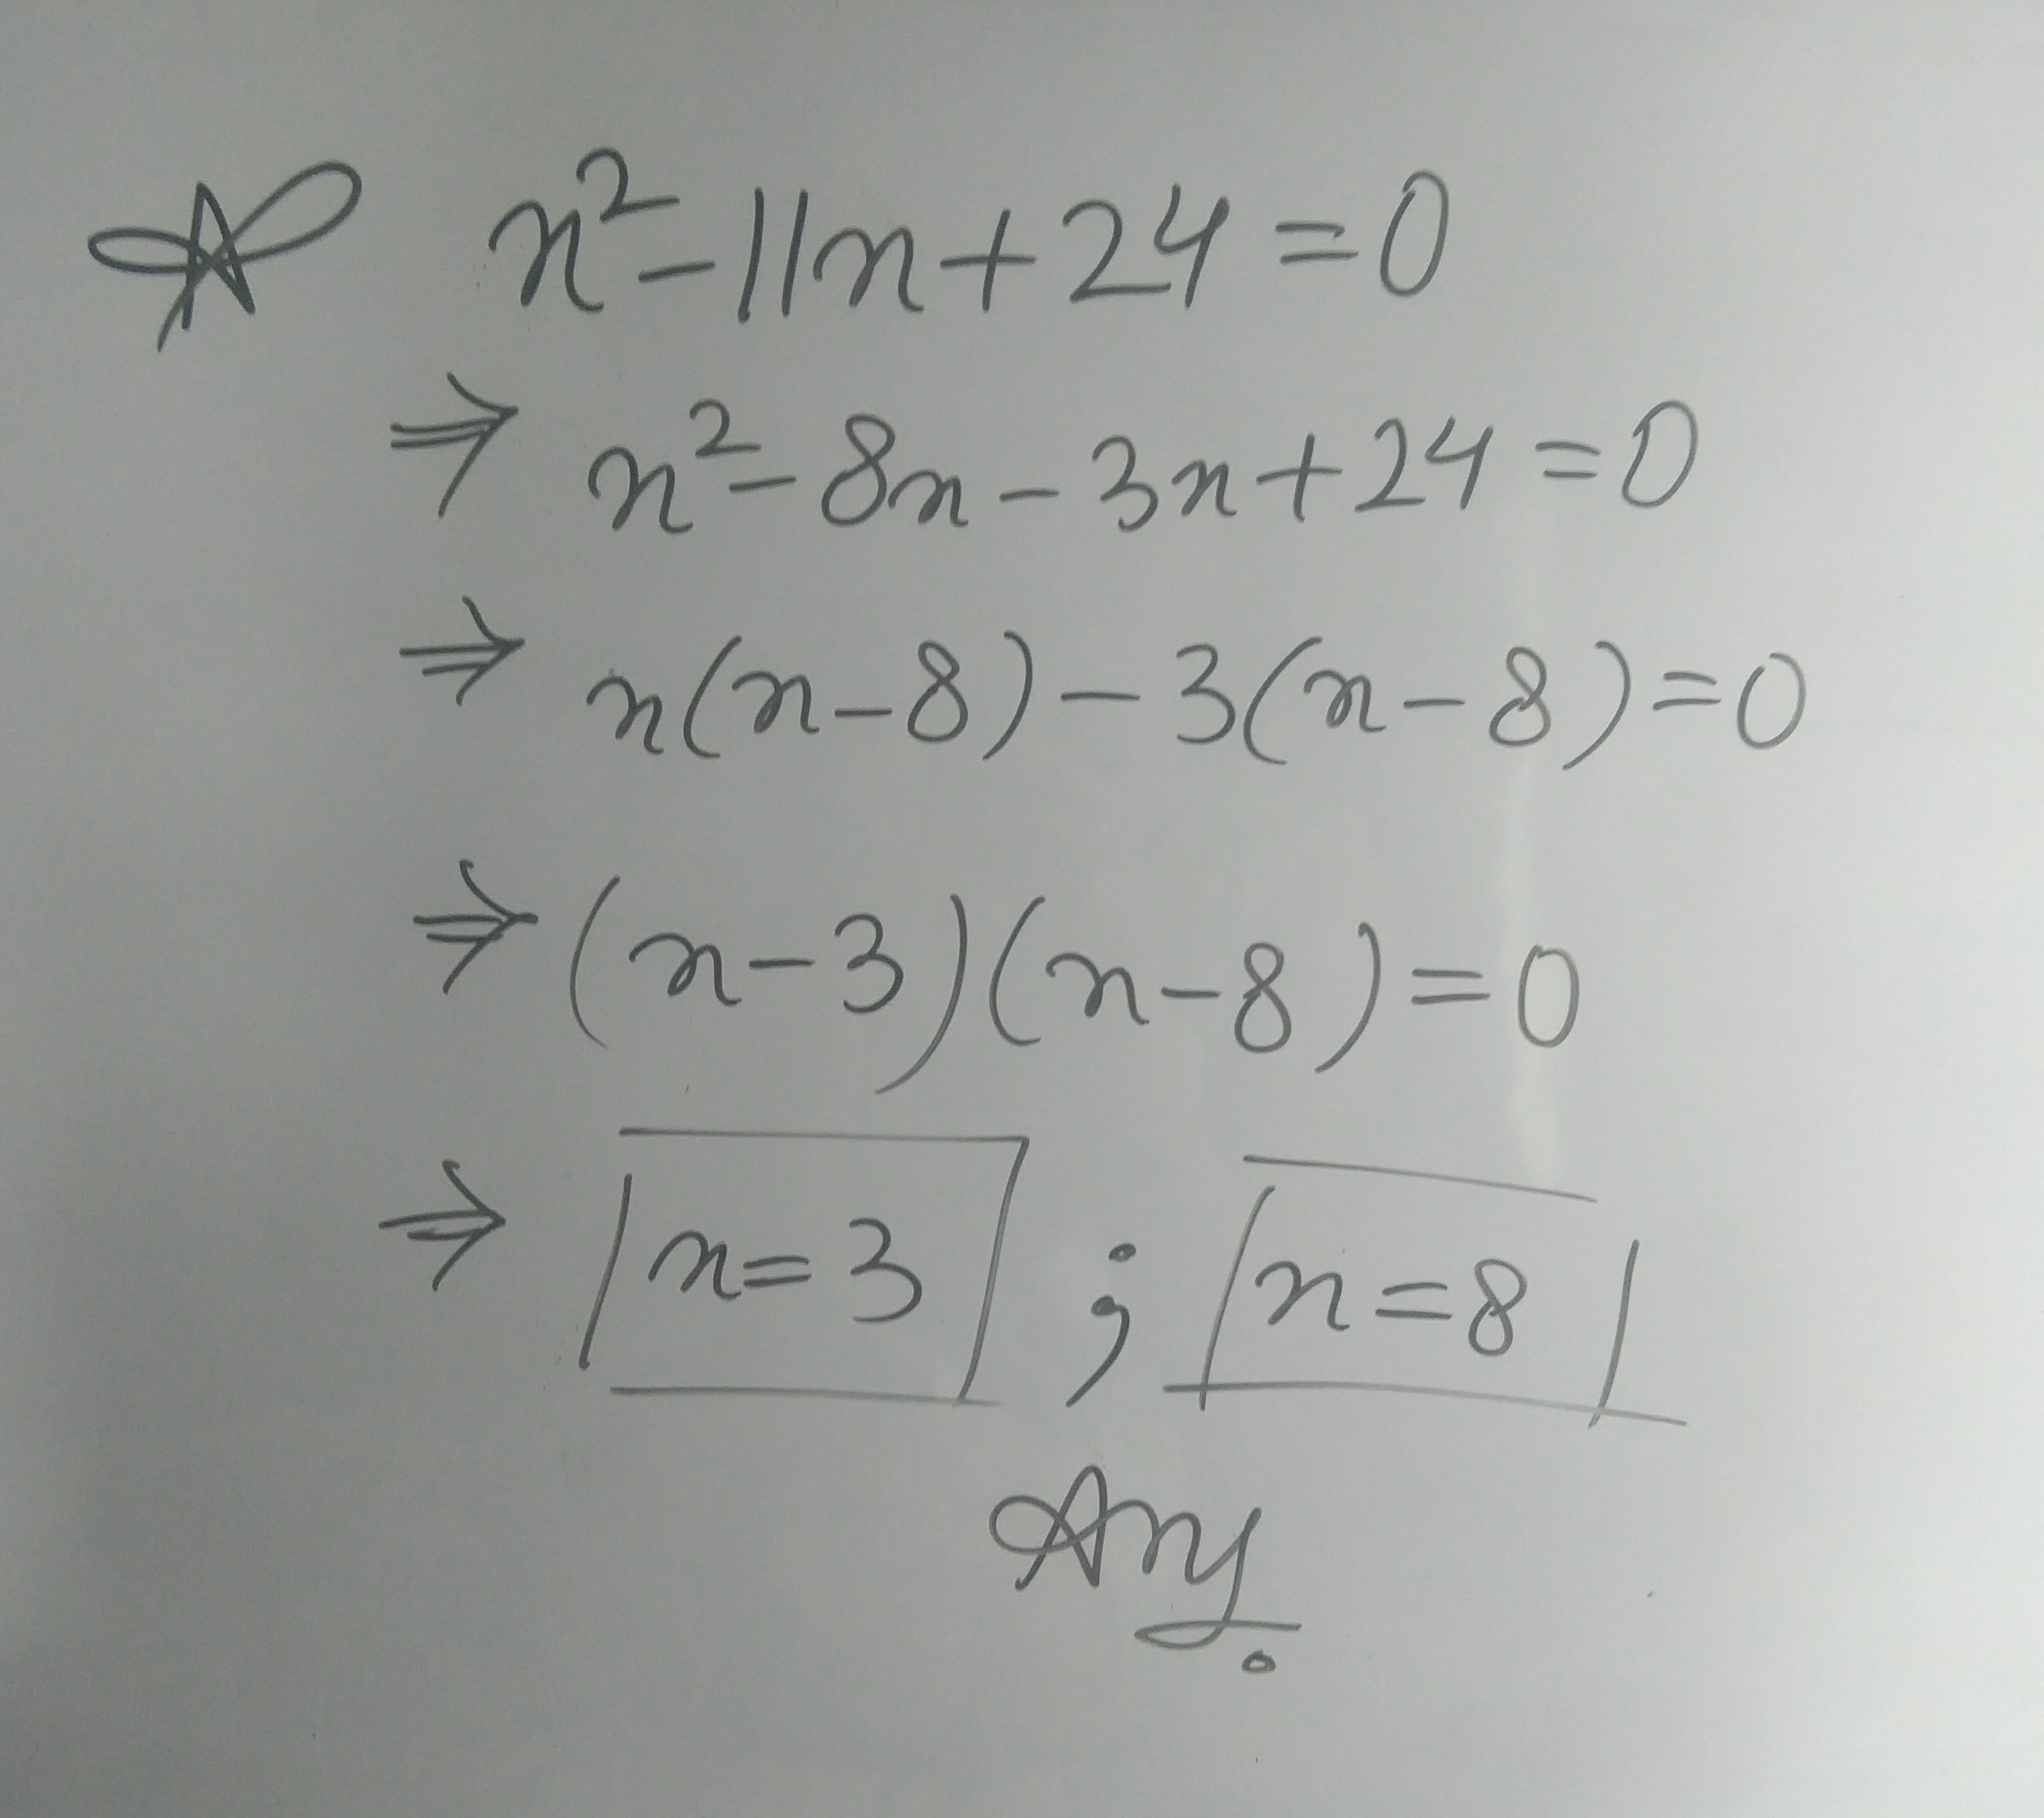 x² - 11x + 24 = 0
⇒ x² - 8x - 3x + 24 = 0
⇒ x(x - 8) - 3(x - 8) = 0
⇒ (x - 3)(x - 8) = 0
⇒ x = 3 ; x = 8
Ans.